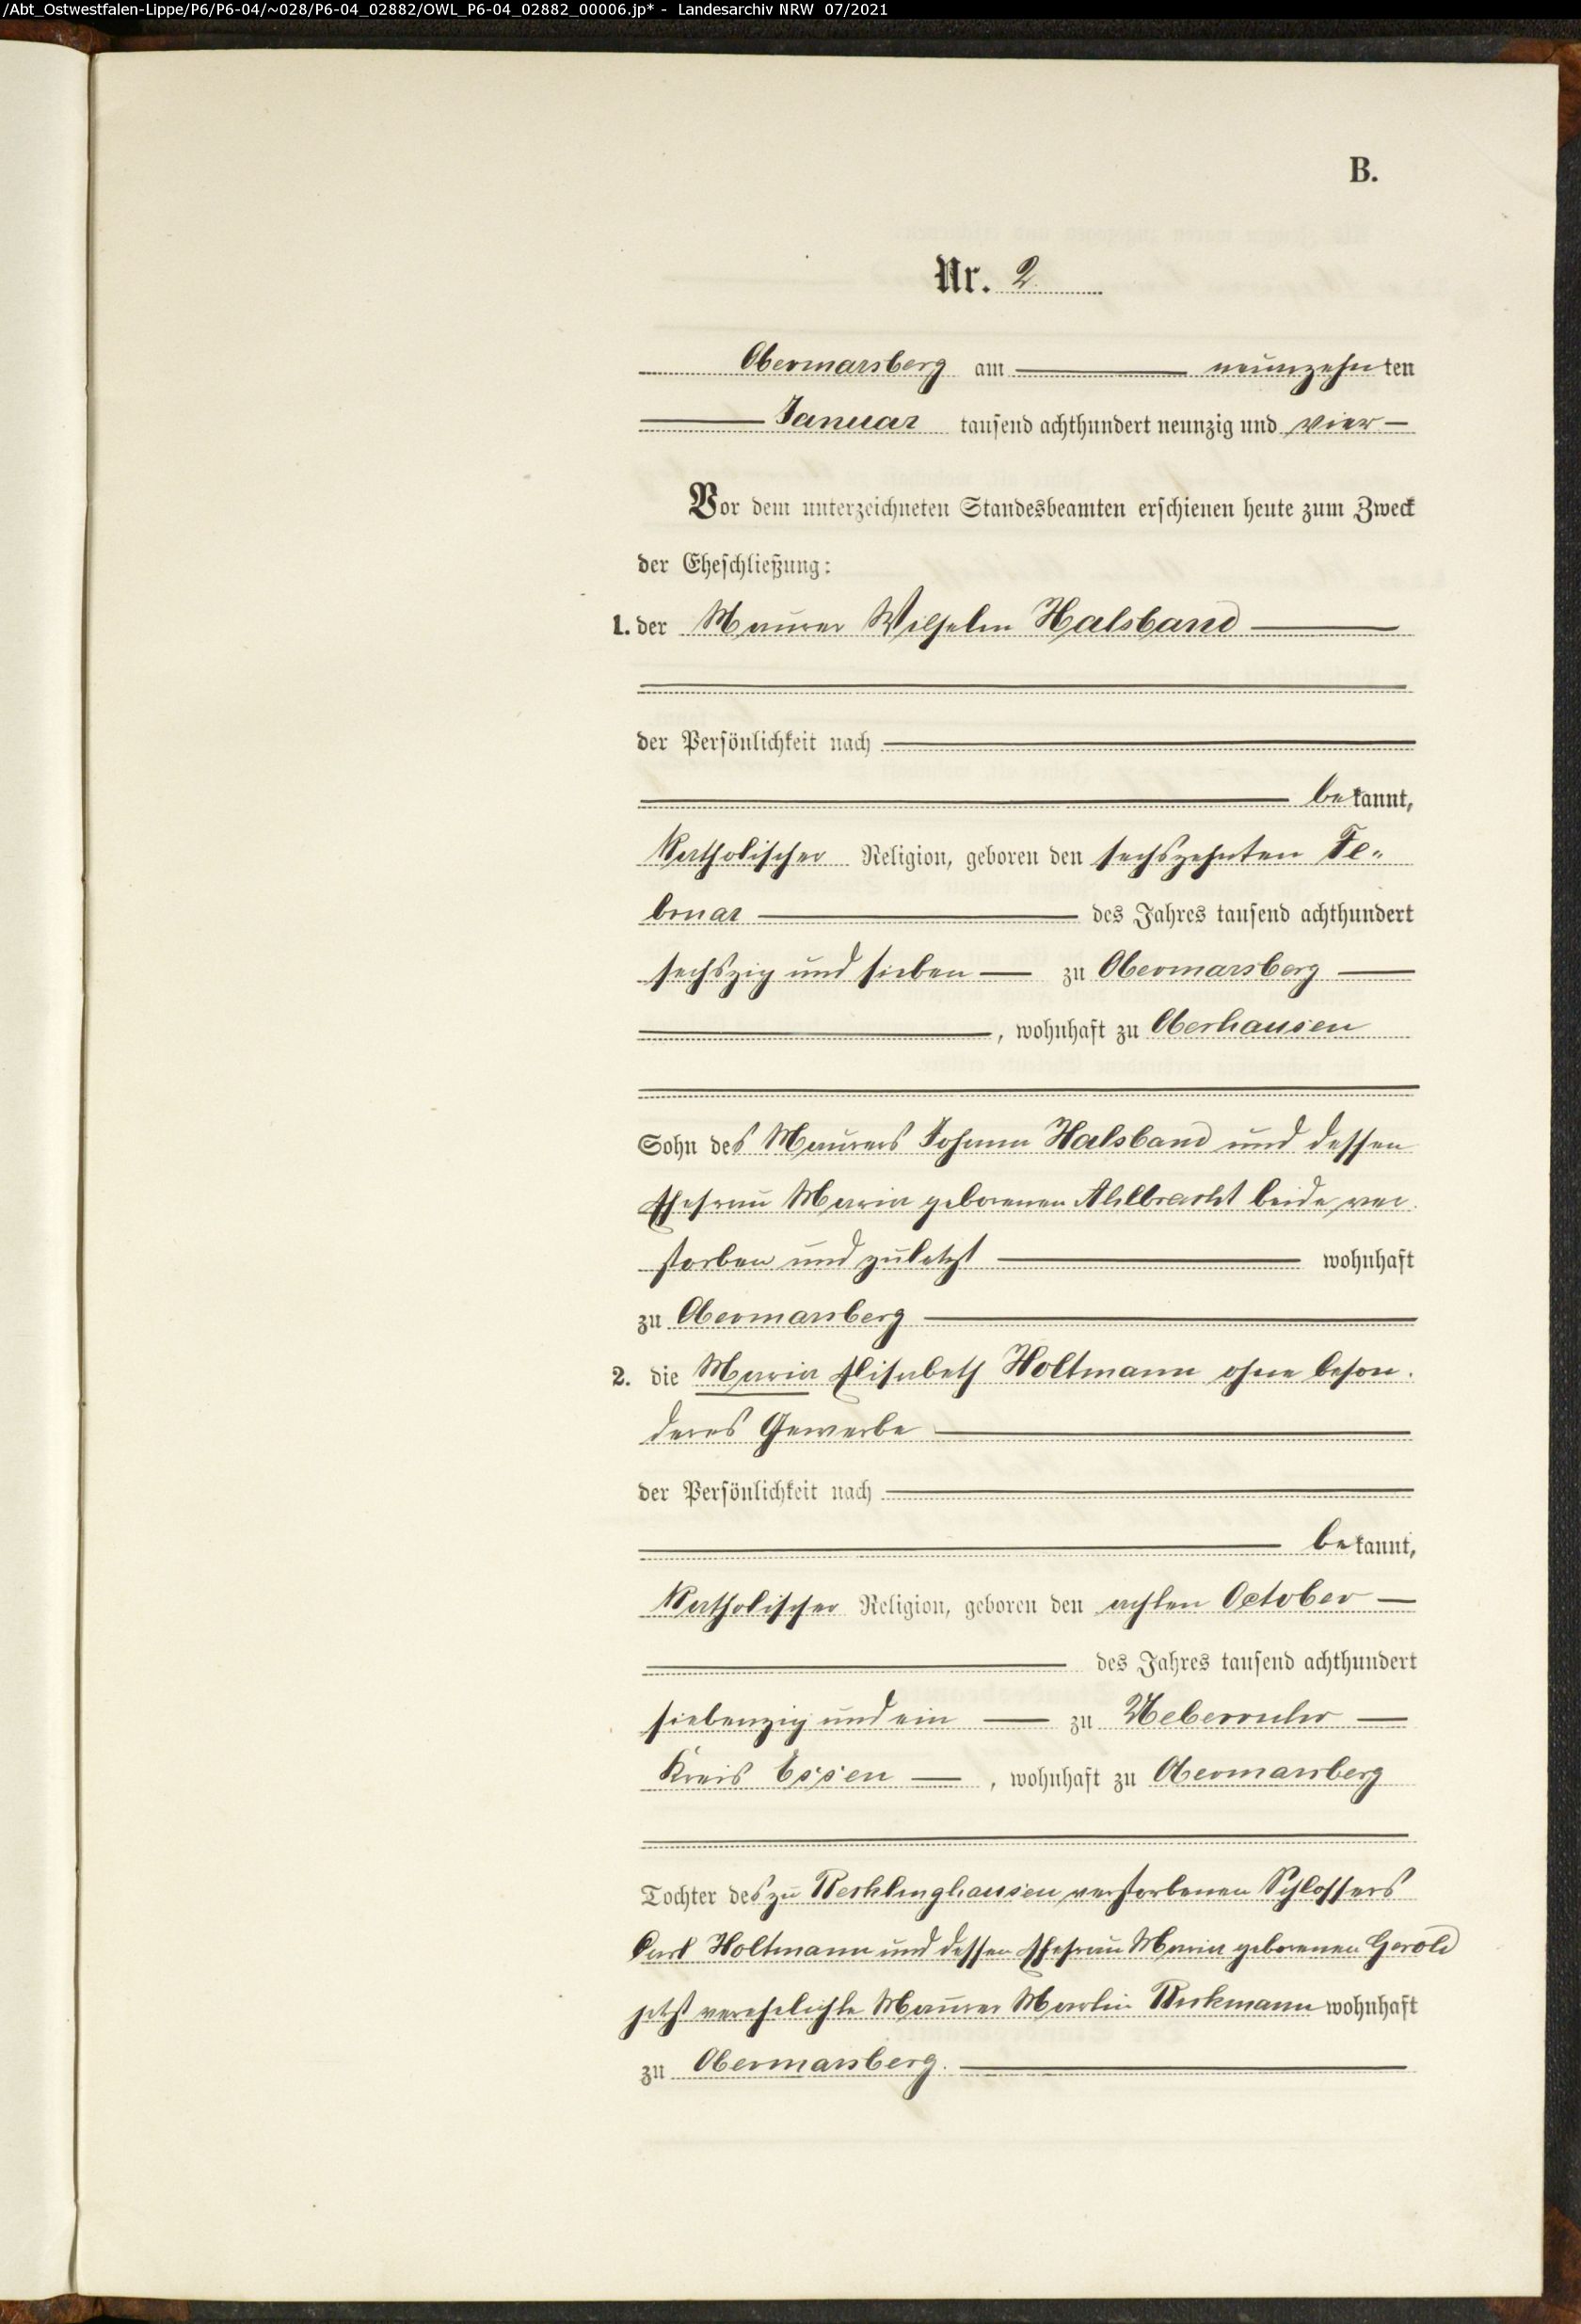 /Abt_Ostwestfalen-Lippe/P6/P6-04/~028/P6-04_02882/OWL_P6-04_02882_00006.jp* - Landesarchiv NRW 07/2021
B.
Nr. 2
Obermarsberg am neunzehnten
Januar tausend achthundert neunzig und vier
Vor dem unterzeichneten Standesbeamten erschienen heute zum Zweck
der Eheschließung:
1. der Maurer Wilhelm Halsband
der Persönlichkeit nach
bekannt,
katholischer Religion, geboren den sechszehnten Fe-
bruar des Jahres tausend achthundert
sechszig und sieben zu Obermarsberg
, wohnhaft zu Oberhausen
Sohn des Maurers Johann Halsband und dessen
Ehefrau Maria geborenen Ahlbracht beide ver
storben und zuletzt wohnhaft
zu Obermarsberg
2. die Maria Elisabeth Holtmann ohne beson
deres Gewerbe
der Persönlichkeit nach
bekannt,
katholischer Religion, geboren den achten October
des Jahres tausend achthundert
siebenzig und ein zu Ueberruhr
Kreis Essen , wohnhaft zu Obermarsberg
Tochter des zu Recklinghausen verstorbenen Schlossers
Carl Holtmann und dessen Ehefrau Maria geborenen Gerold
jetzt verehelichte Maurer Martin wohnhaft
zu Obermarsberg.